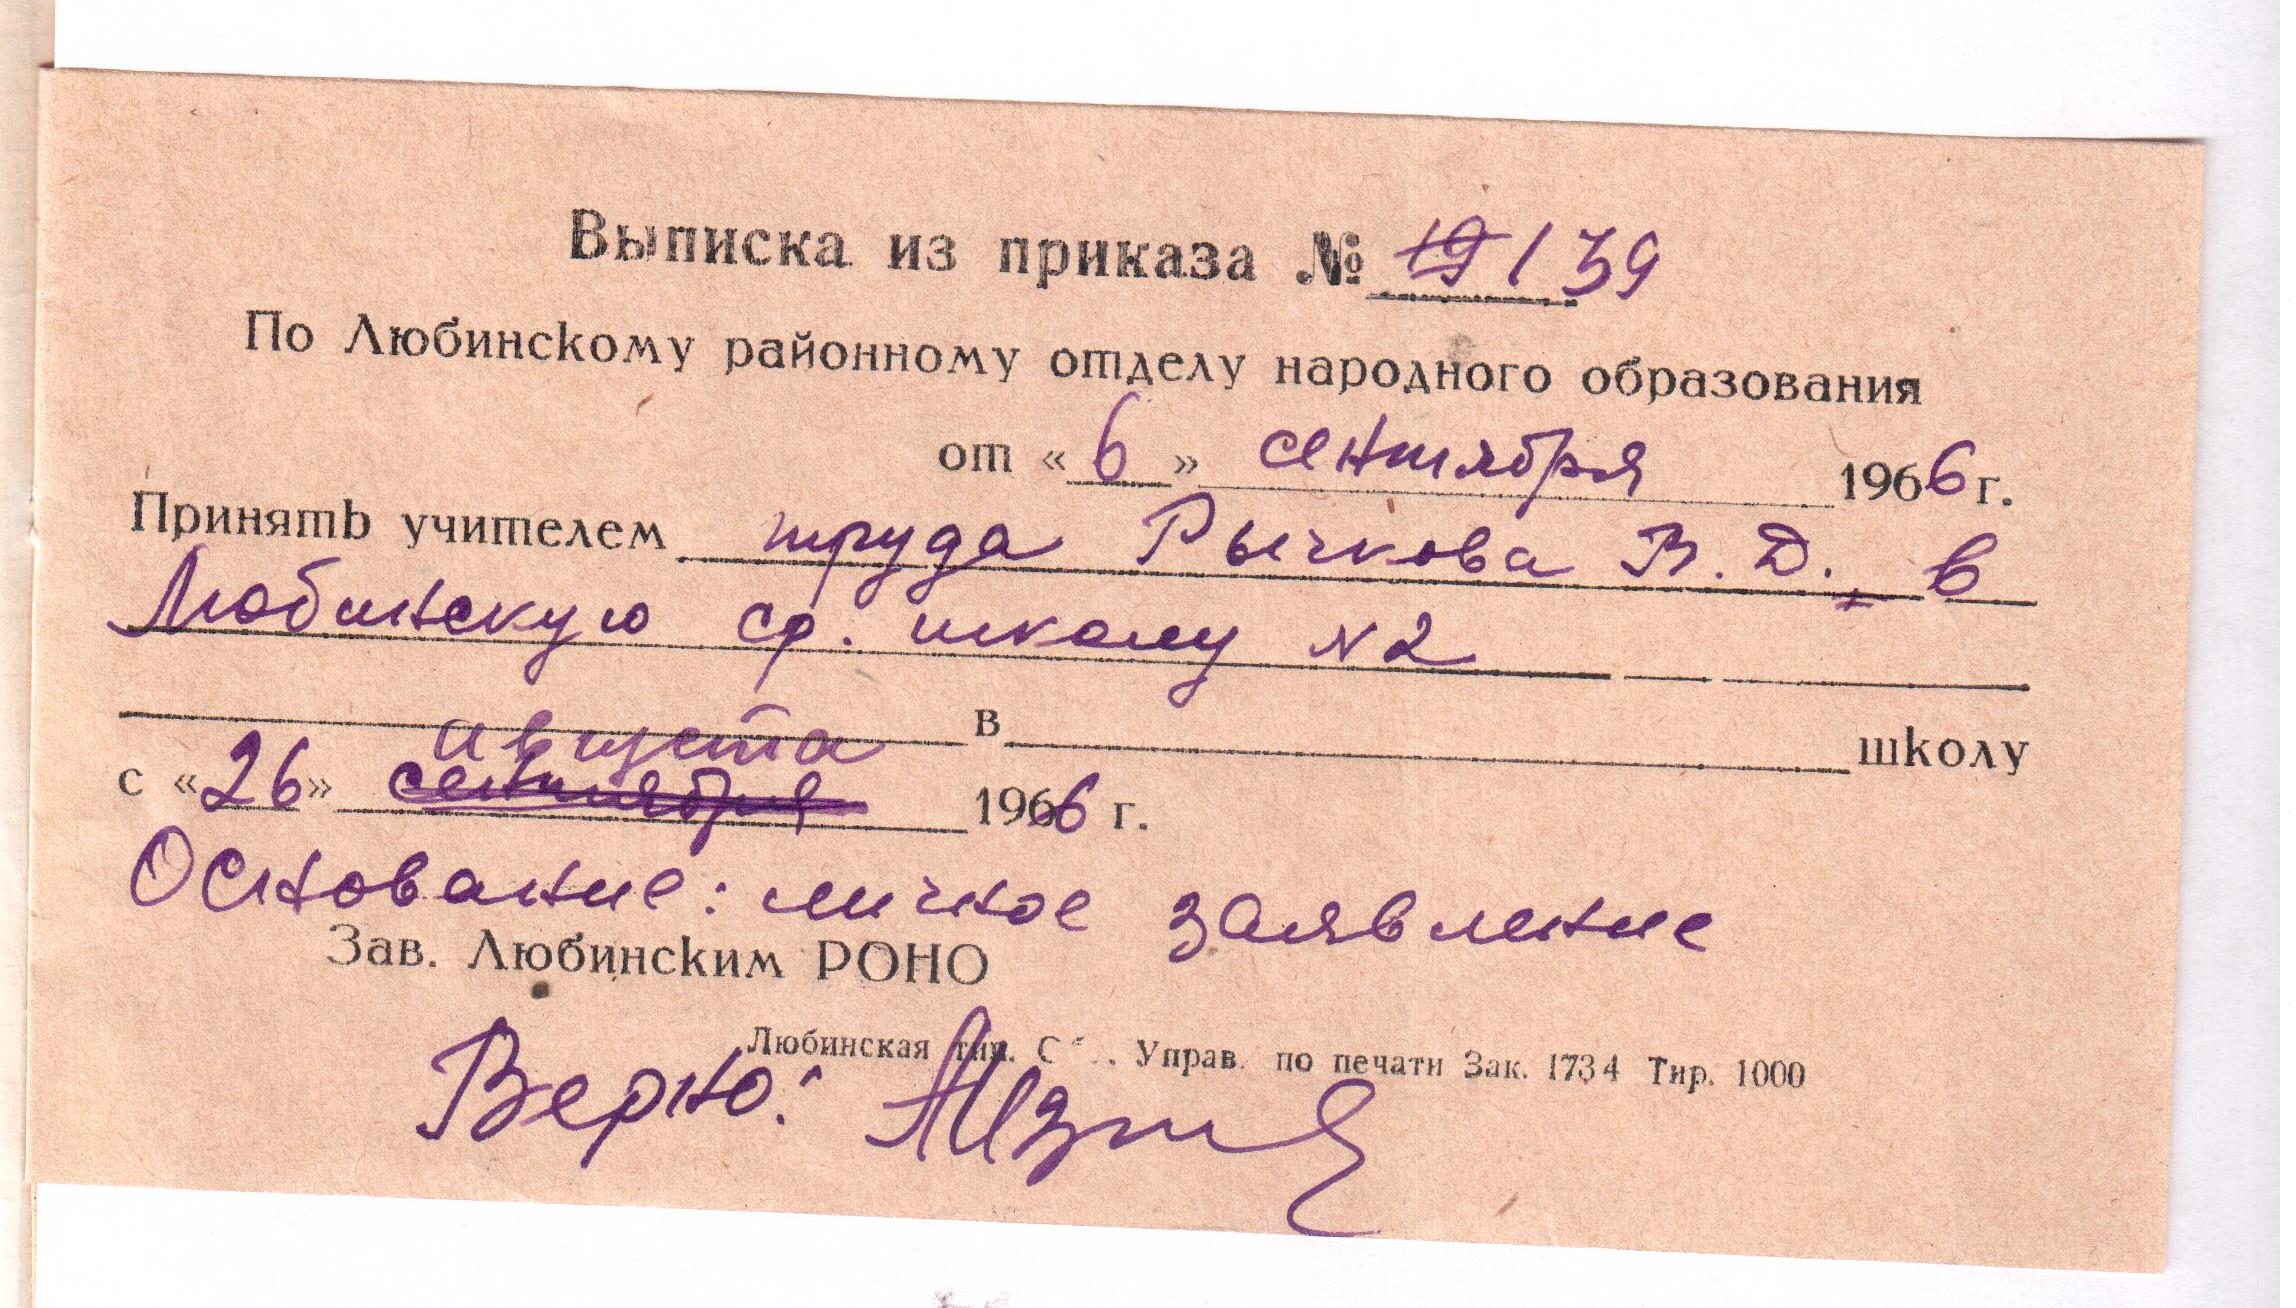 Выписка из приказа № 19 139
По Любинскому районному отделу народного образования
от «6» сентября 1966 г.
Принять учителем труда Рычкова В. Д. в
Любинскую ср. школу N2
в школу
августа
с «26» сентября 1966 г.
Основание: личное заявление
Зав. Любинским РОНО
Любинская тип. Управ. по печати Зак. 1734 Тир. 1000
Верно: